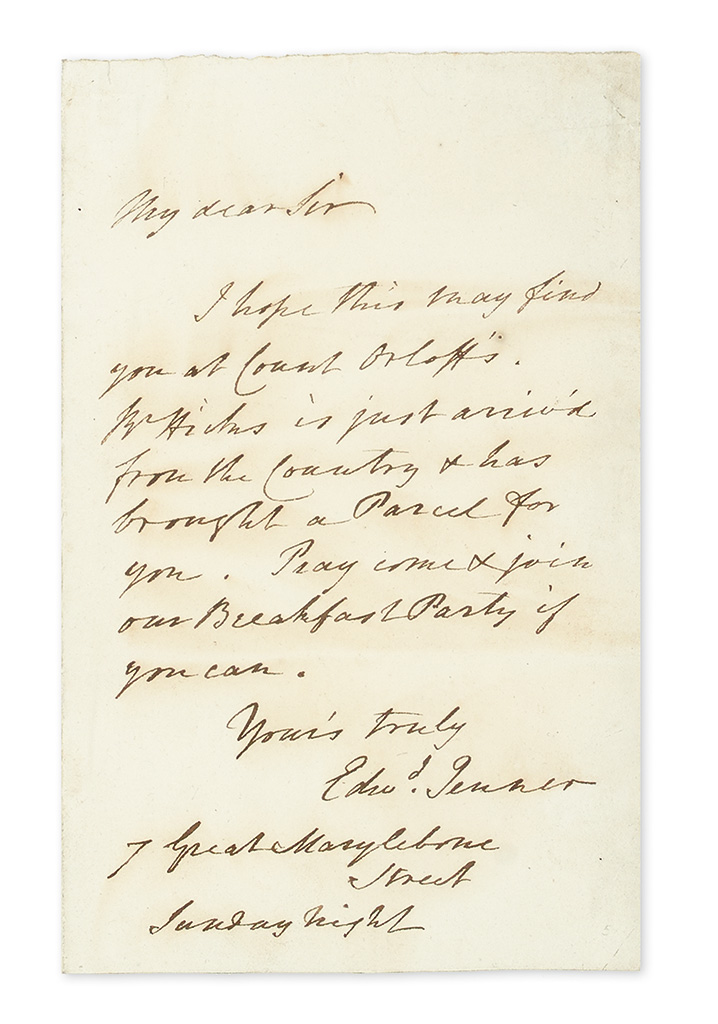 My dear Sir
I hope this may find
you at Count Orloff's.
Mr Hicks is just arriv'd
from the Country & has
brought a Parcel for
you. Pray come & join
our Breakfast Party if
you can.
Your's truly
Edwd. Jenner
7 Great Marylebone
Street
Sunday Night